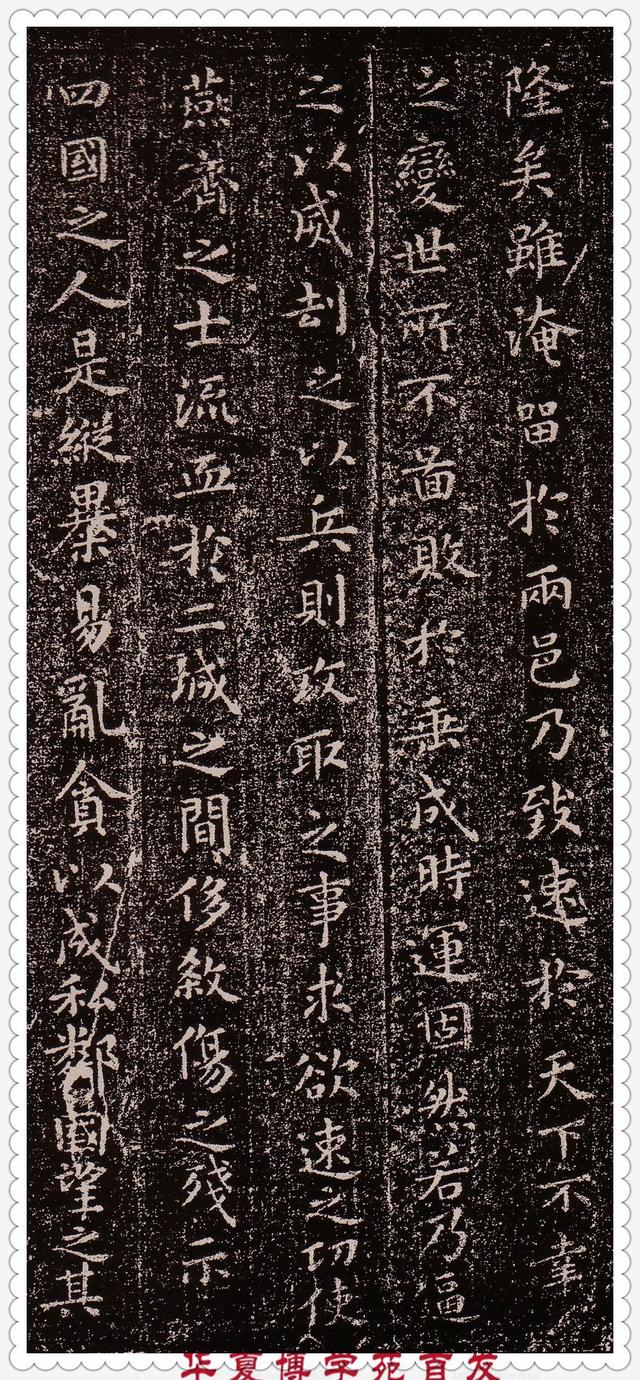 隆矣雖淹留於兩邑乃致速於天下不幸
之變世所不啚敗於垂成時運固然若乃逼
之以威劫之以兵則攻取之事求欲速之功使
燕齊之士流血於二城之間侈殺傷之殘示
四國之人是縱暴易亂貪以成私鄰國望之其
华夏博学苑首发